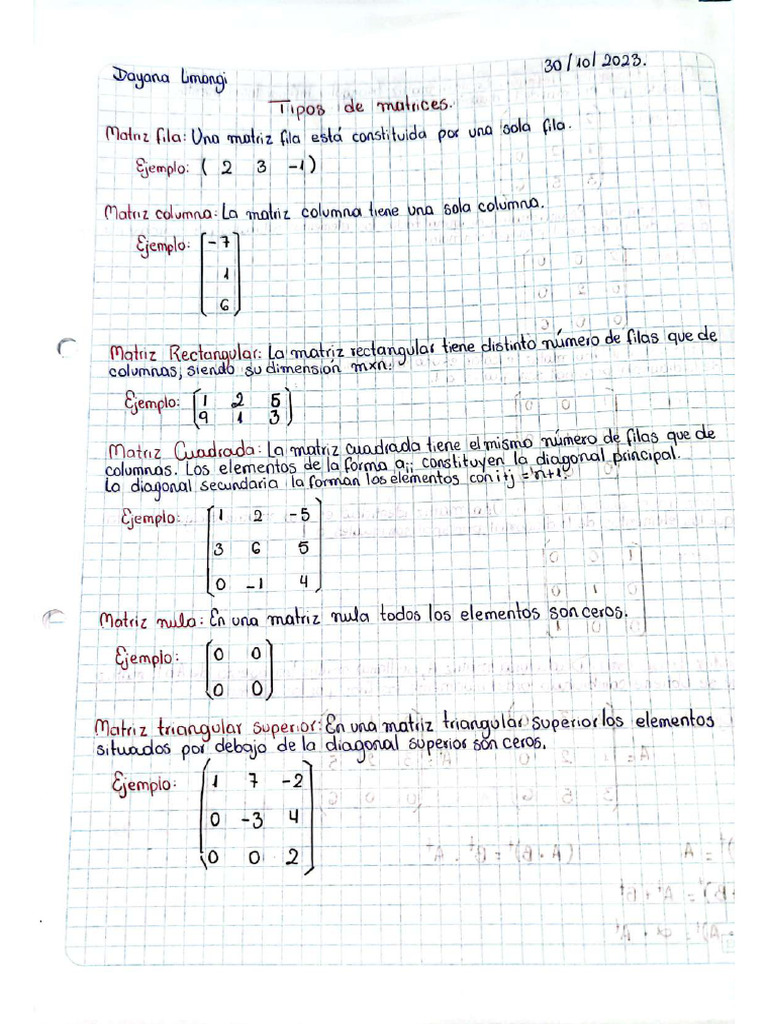 Dayana Limongi
30/10/2023.
Tipos de matrices.
Matriz fila: Una matriz fila está constituida por una sola fila.
Ejemplo: ( 2 3 -1)
Matriz columna: La matriz columna tiene una sola columna.
Ejemplo: [-7]
1
6
Matriz Rectangular: La matriz rectangular tiene distinto número de filas que de
columnas, siendo su dimensión m×n.
Ejemplo: [1 2 5]
9 1 3
Matriz Cuadrada: La matriz cuadrada tiene el mismo número de filas que de
columnas. Los elementos de la forma aii constituyen la diagonal principal.
La diagonal secundaria la forman los elementos con i+j = n+1.
Ejemplo: [1 2 -5]
3 6 5
0 -1 4
Matriz nula: En una matriz nula todos los elementos son ceros.
Ejemplo: [0 0]
0 0
Matriz triangular superior: En una matriz triangular superior los elementos
situados por debajo de la diagonal superior son ceros.
Ejemplo: [1 7 -2]
0 -3 4
0 0 2